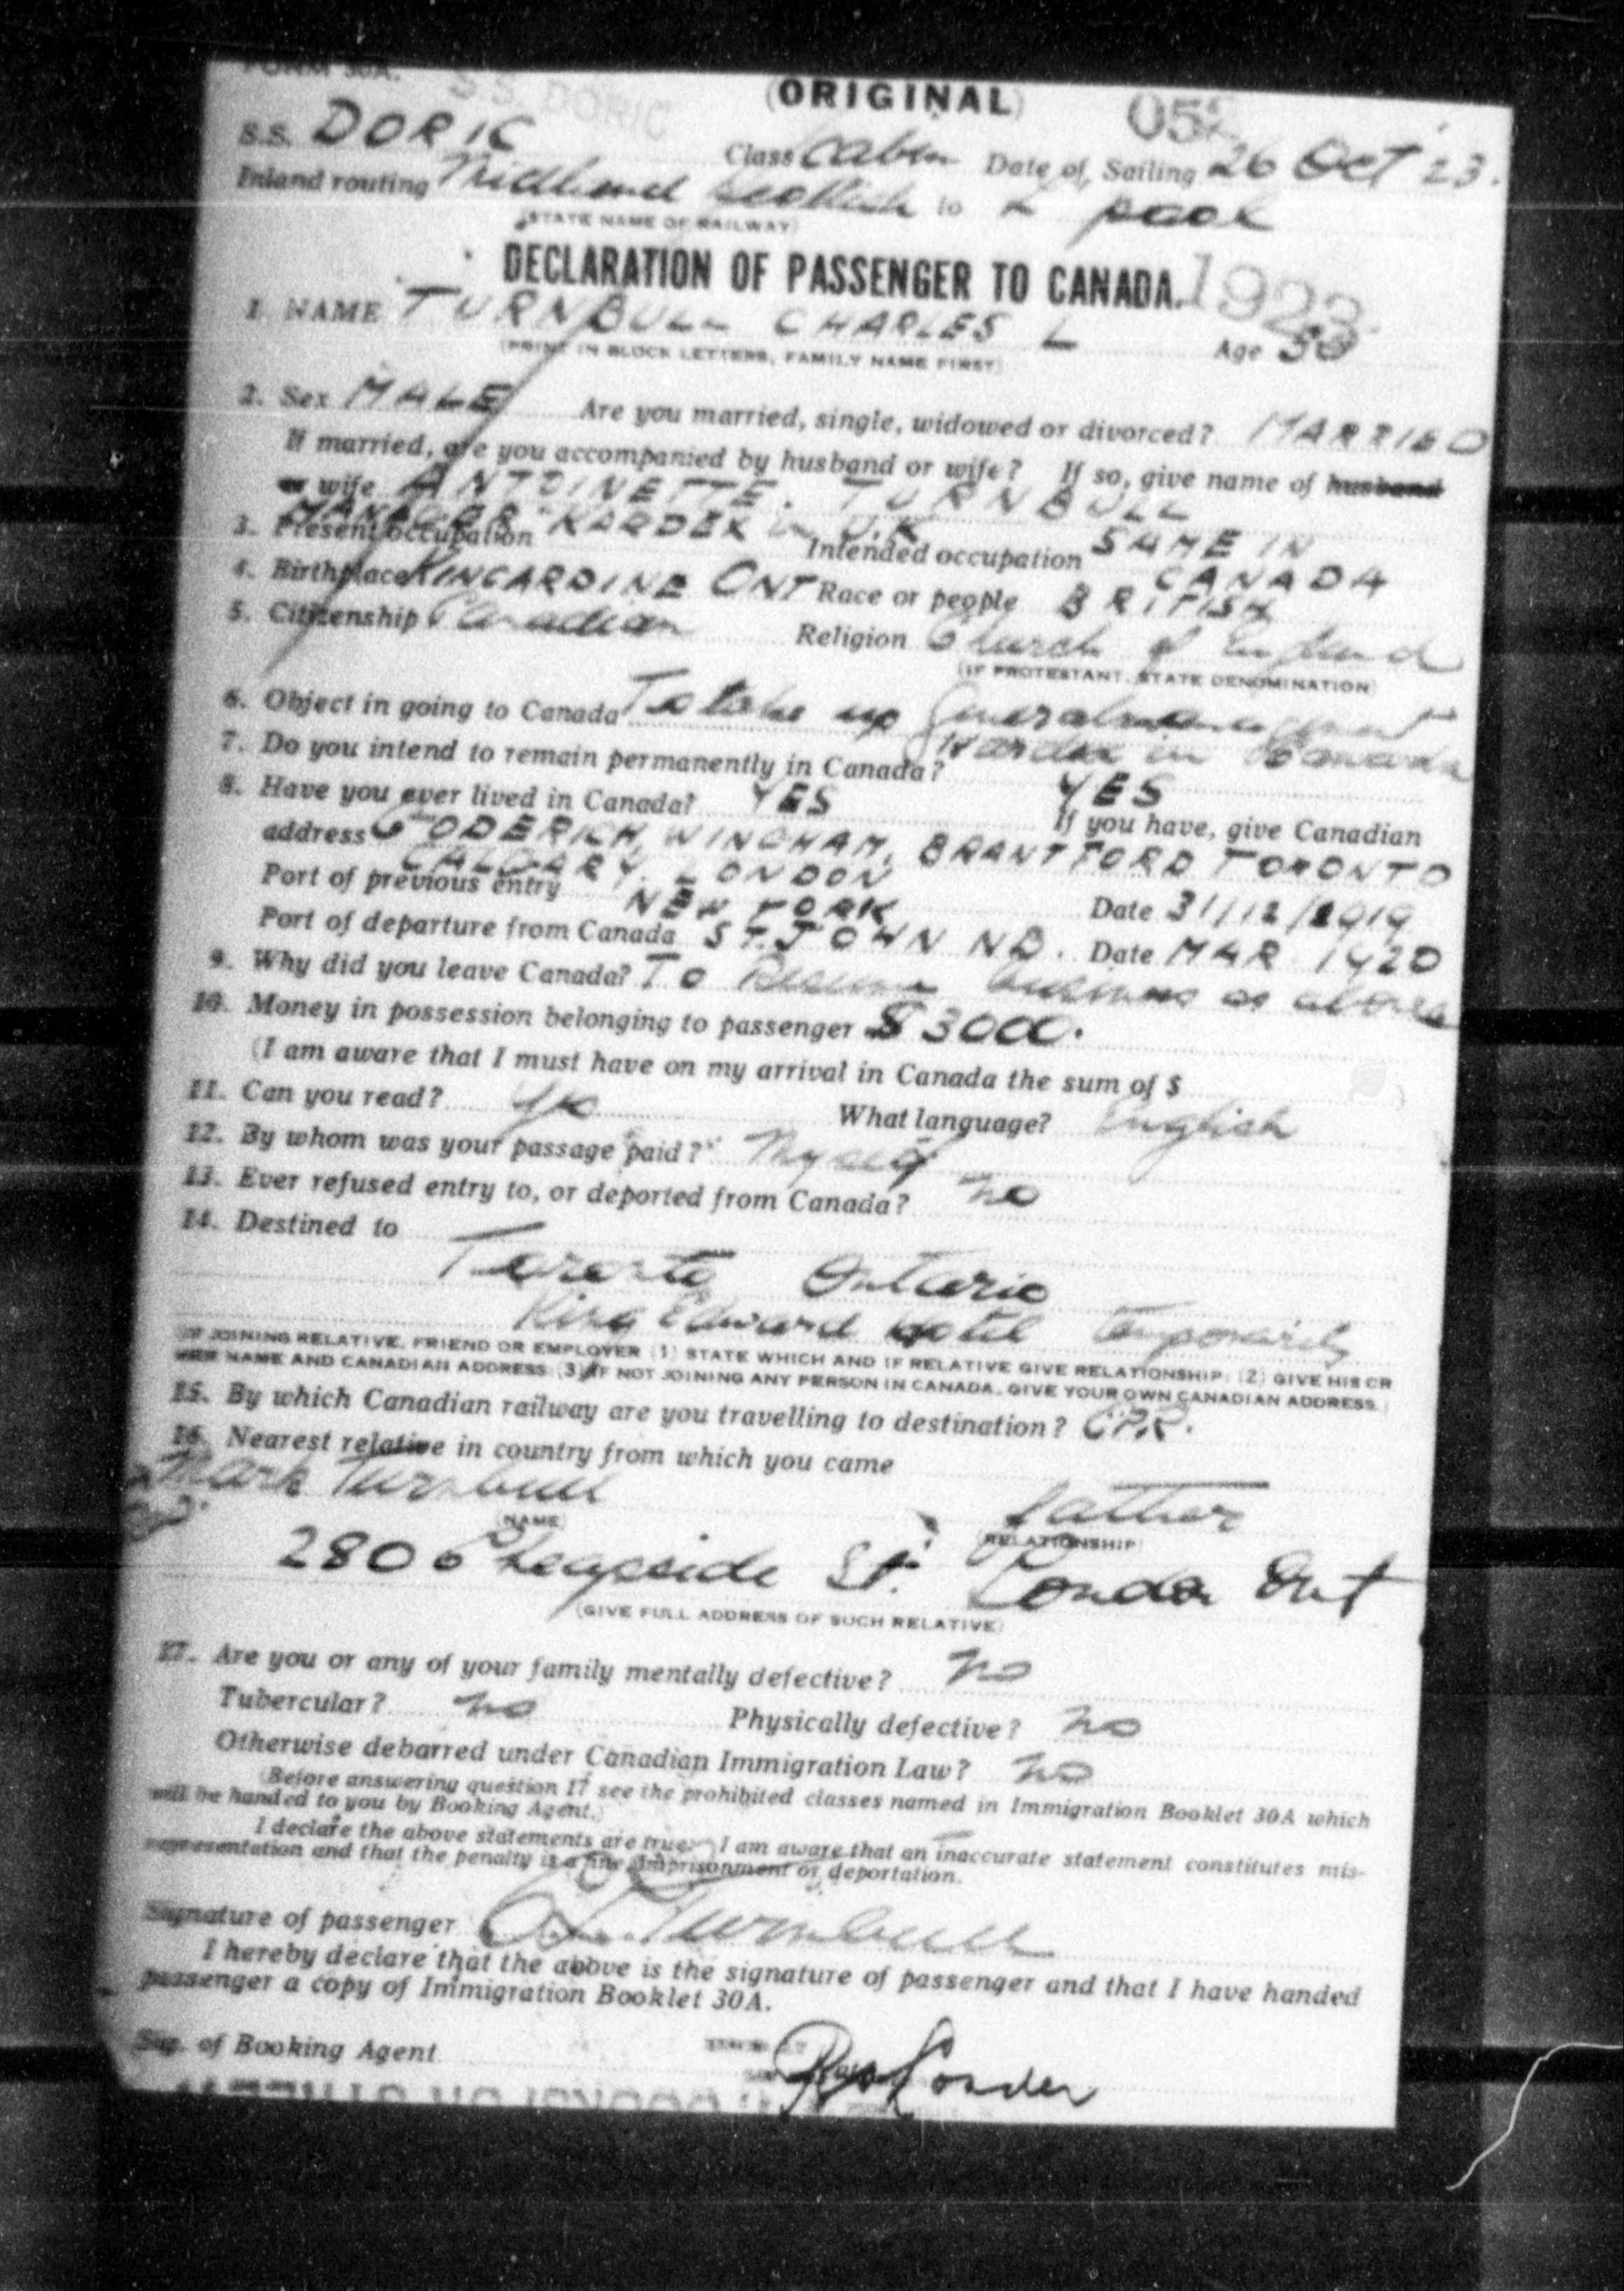 FORM 30A. S.S. DORIC (ORIGINAL) 05
S.S. DORIC Class Cabin Date of Sailing 26 Oct 23.
Inland routing Midland to L'pool
(STATE NAME OF RAILWAY)
DECLARATION OF PASSENGER TO CANADA. 1923
1. NAME TURNBULL CHARLES L Age
(PRINT IN BLOCK LETTERS, FAMILY NAME FIRST)
2. Sex MALE Are you married, single, widowed or divorced? MARRIED
If married, are you accompanied by husband or wife? If so, give name of husband
or wife ANTOINETTE. TURNBULL
3. Present occupation MANAGER KARDEX in U.K Intended occupation SAME IN
CANADA
4. Birthplace KINCARDINE ONT Race or people BRITISH
5. Citizenship Canadian Religion Church of England
(IF PROTESTANT, STATE DENOMINATION)
6. Object in going to Canada To take up General management
Kardex in Canada
7. Do you intend to remain permanently in Canada? YES
8. Have you ever lived in Canada? YES If you have, give Canadian
address GODERICH, WINGHAM, BRANTFORD TORONTO
CALGARY. LONDON
Port of previous entry NEW YORK Date 31/12/1919
Port of departure from Canada ST. JOHN NB. Date MAR 1920
9. Why did you leave Canada? To Resume business as above
10. Money in possession belonging to passenger $3000.
(I am aware that I must have on my arrival in Canada the sum of $
11. Can you read? Yes What language? English
12. By whom was your passage paid? Myself
13. Ever refused entry to, or deported from Canada? no
14. Destined to
Toronto Ontario
King Edward Hotel temporarily
(IF JOINING RELATIVE, FRIEND OR EMPLOYER (1) STATE WHICH AND IF RELATIVE GIVE RELATIONSHIP; (2) GIVE HIS OR
HER NAME AND CANADIAN ADDRESS (3) IF NOT JOINING ANY PERSON IN CANADA, GIVE YOUR OWN CANADIAN ADDRESS.)
15. By which Canadian railway are you travelling to destination? CPR.
16. Nearest relative in country from which you came
Mark Turnbull father
(NAME) (RELATIONSHIP)
280 Cheapside St. London Ont
(GIVE FULL ADDRESS OF SUCH RELATIVE)
17. Are you or any of your family mentally defective? no
Tubercular? no Physically defective? no
Otherwise debarred under Canadian Immigration Law? no
(Before answering question 17 see the prohibited classes named in Immigration Booklet 30A which
will be handed to you by Booking Agent.)
I declare the above statements are true. I am aware that an inaccurate statement constitutes mis-
representation and that the penalty is a fine, imprisonment or deportation.
Signature of passenger C L Turnbull
I hereby declare that the above is the signature of passenger and that I have handed
passenger a copy of Immigration Booklet 30A.
Sig. of Booking Agent